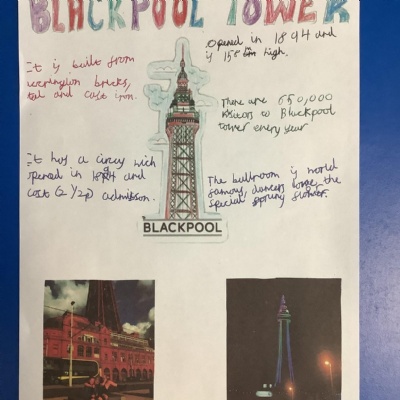 BLACKPOOL TOWER
Opened in 1894 and
is 158m high.
It is built from
bricks,
and cast iron.
There are 650,000
visitors to Blackpool
tower every year
It has a circus wich
opened in 1894 and
cost (2 1/2p) admission.
The ballroom is world
famous, dancers love the
special spring floor.
BLACKPOOL